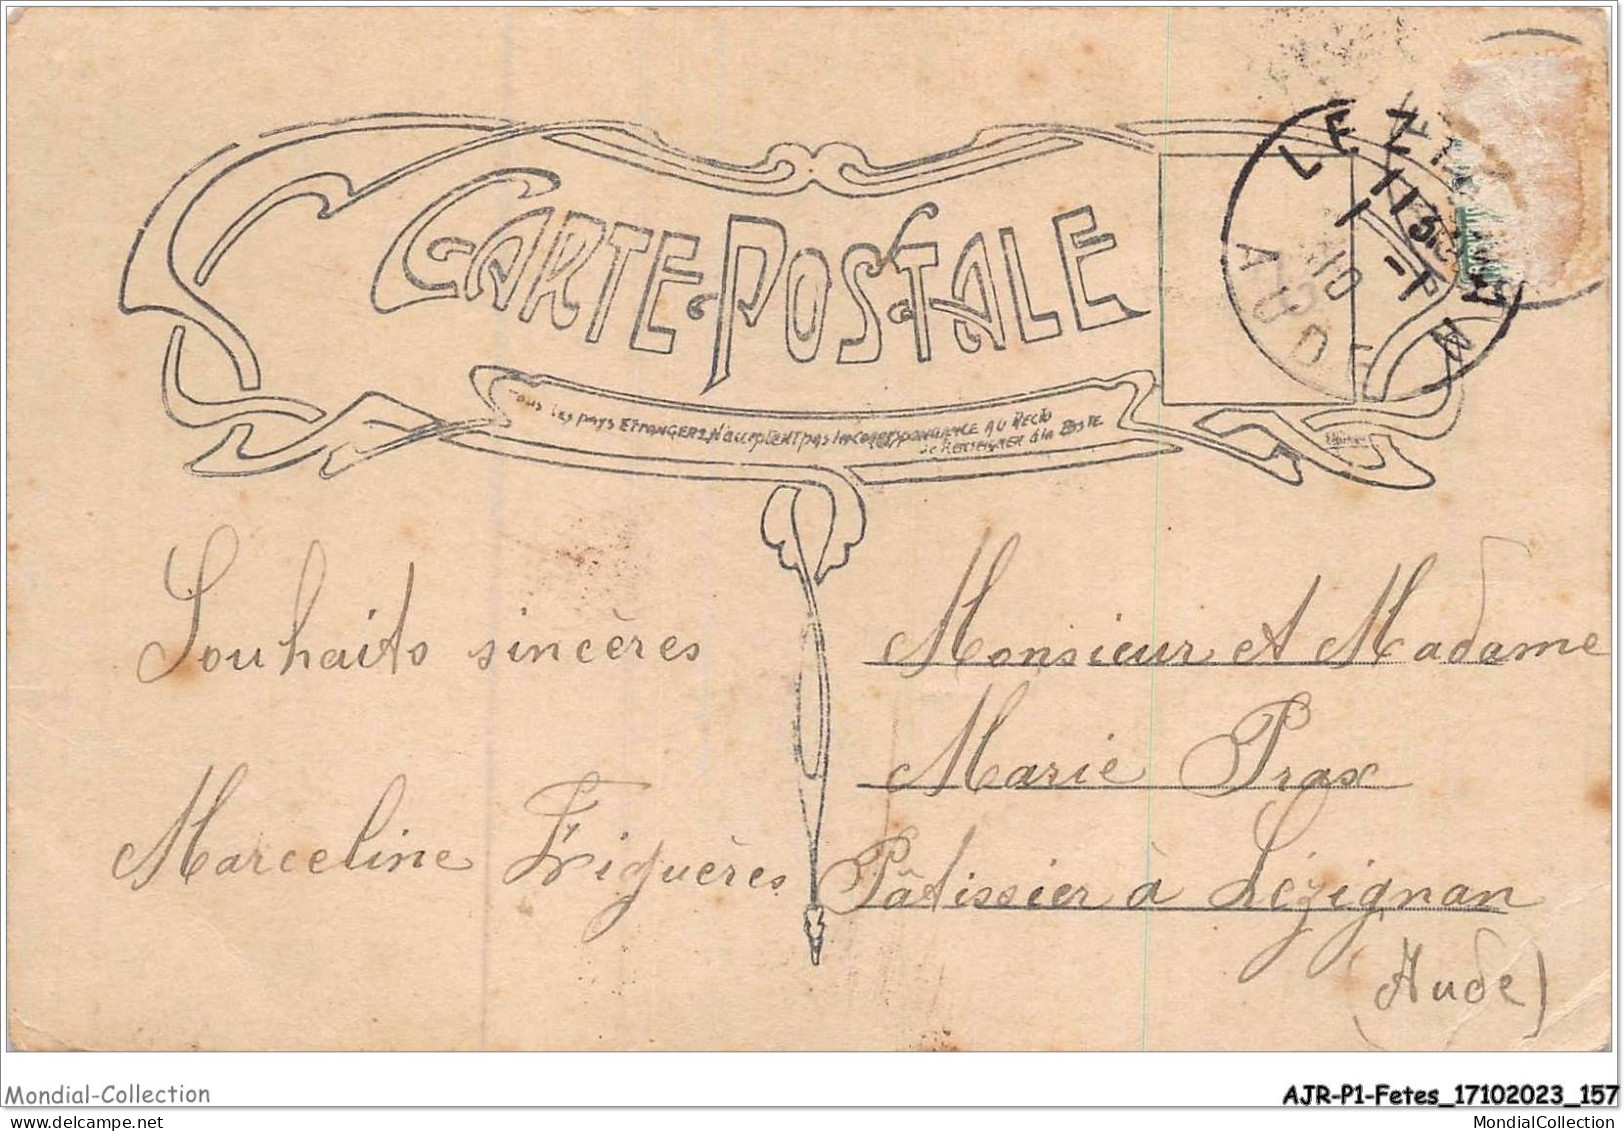 CARTE POSTALE
Tous les pays ETRANGERS N'acceptent pas la correspondance AU Recto
se RENSEIGNER à la POSTE
LEZIGNAN
11
1 -1
10
AUDE
Souhaits sincères
Marceline Figuères
Monsieur et Madame
Marie Prax
Pâtissier à Lézignan
(Aude)
Mondial-Collection
AJR-P1-Fetes_17102023_157
MondialCollection